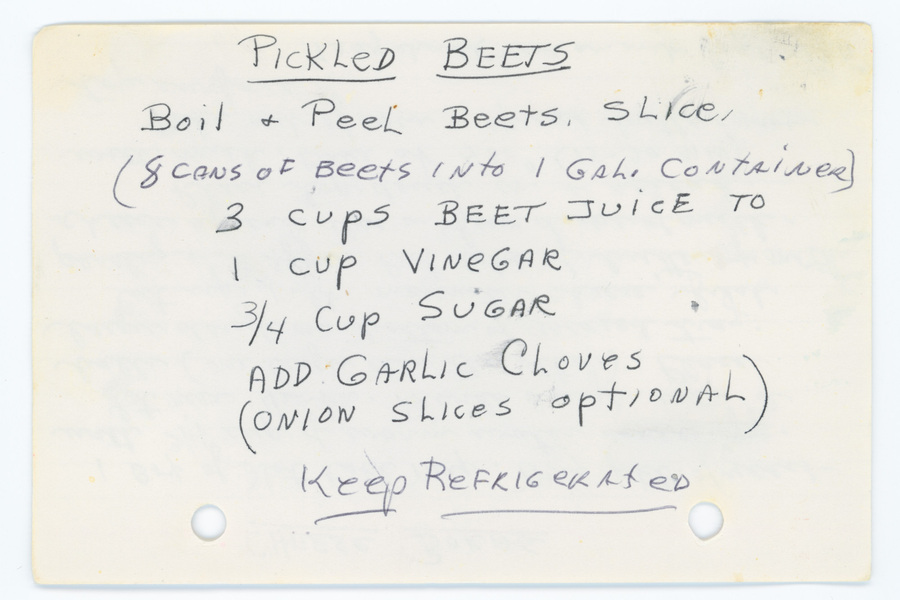 PICKLED BEETS
Boil + Peel Beets. SLice,
(8 CANS OF Beets INto 1 GAL. CONTAINER)
3 cups BEET JUICE TO
1 cup VINEGAR
3/4 Cup SUGAR
ADD GARLIC Cloves
(ONION SLICES optIONAL)
Keep REFRIGERAted